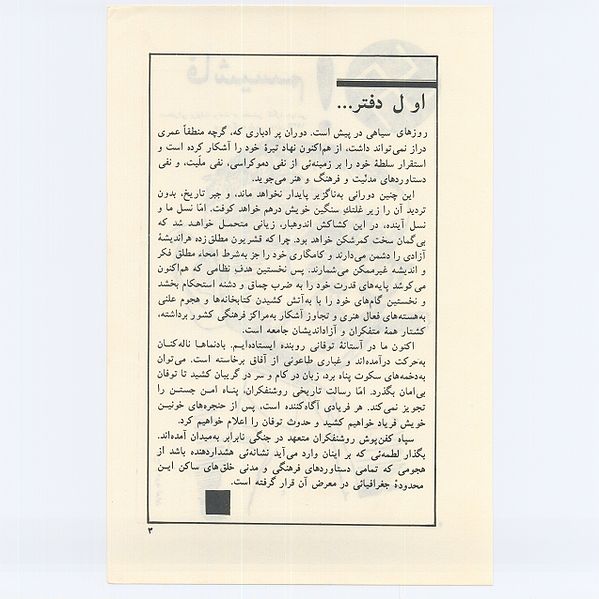 اول دفتر...
روزهای سیاهی در پیش است. دوران پر ادباری که، گرچه منطقاً عمری
دراز نمی‌تواند داشت، از هم‌اکنون نهاد تیرهٔ خود را آشکار کرده است و
استقرار سلطهٔ خود را بر زمینه‌ئی از نفی دموکراسی، نفی ملیت، و نفی
دستاوردهای مدنیت و فرهنگ و هنر می‌جوید.
این چنین دورانی به‌ناگزیر پایدار نخواهد ماند، و جبر تاریخ، بدون
تردید آن را زیر غلتک سنگین خویش درهم خواهد کوفت. امّا نسل ما و
نسل آینده، در این کشاکش اندوهبار، زیانی متحمل خواهد شد که
بی‌گمان سخت کمرشکن خواهد بود. چرا که قشریون مطلق‌زده هراندیشهٔ
آزادی را دشمن می‌دارند و کامگاری خود را جز به‌شرط امحاء مطلق فکر
و اندیشه غیرممکن می‌شمارند. پس نخستین هدف نظامی که هم‌اکنون
می‌کوشد پایه‌های قدرت خود را به ضرب چماق و دشنه استحکام بخشد
و نخستین گام‌های خود را با به‌آتش کشیدن کتابخانه‌ها و هجوم علنی
به‌هسته‌های فعال هنری و تجاوز آشکار به‌مراکز فرهنگی کشور برداشته،
کشتار همهٔ متفکران و آزاداندیشان جامعه است.
اکنون ما در آستانهٔ توفانی روبنده ایستاده‌ایم. بادنماها ناله‌کنان
به‌حرکت درآمده‌اند و غباری طاعونی از آفاق برخاسته است. می‌توان
به‌دخمه‌های سکوت پناه برد، زبان در کام و سر در گریبان کشید تا توفان
بی‌امان بگذرد. امّا رسالت تاریخی روشنفکران، پناه امن جستن را
تجویز نمی‌کند. هر فریادی آگاه‌کننده است، پس از حنجره‌های خونین
خویش فریاد خواهیم کشید و حدوث توفان را اعلام خواهیم کرد.
سپاه کفن‌پوش روشنفکران متعهد در جنگی نابرابر به‌میدان آمده‌اند.
بگذار لطمه‌ئی که بر اینان وارد می‌آید نشانه‌ئی هشداردهنده باشد از
هجومی که تمامی دستاوردهای فرهنگی و مدنی خلق‌های ساکن این
محدودهٔ جغرافیائی در معرض آن قرار گرفته است.
۳